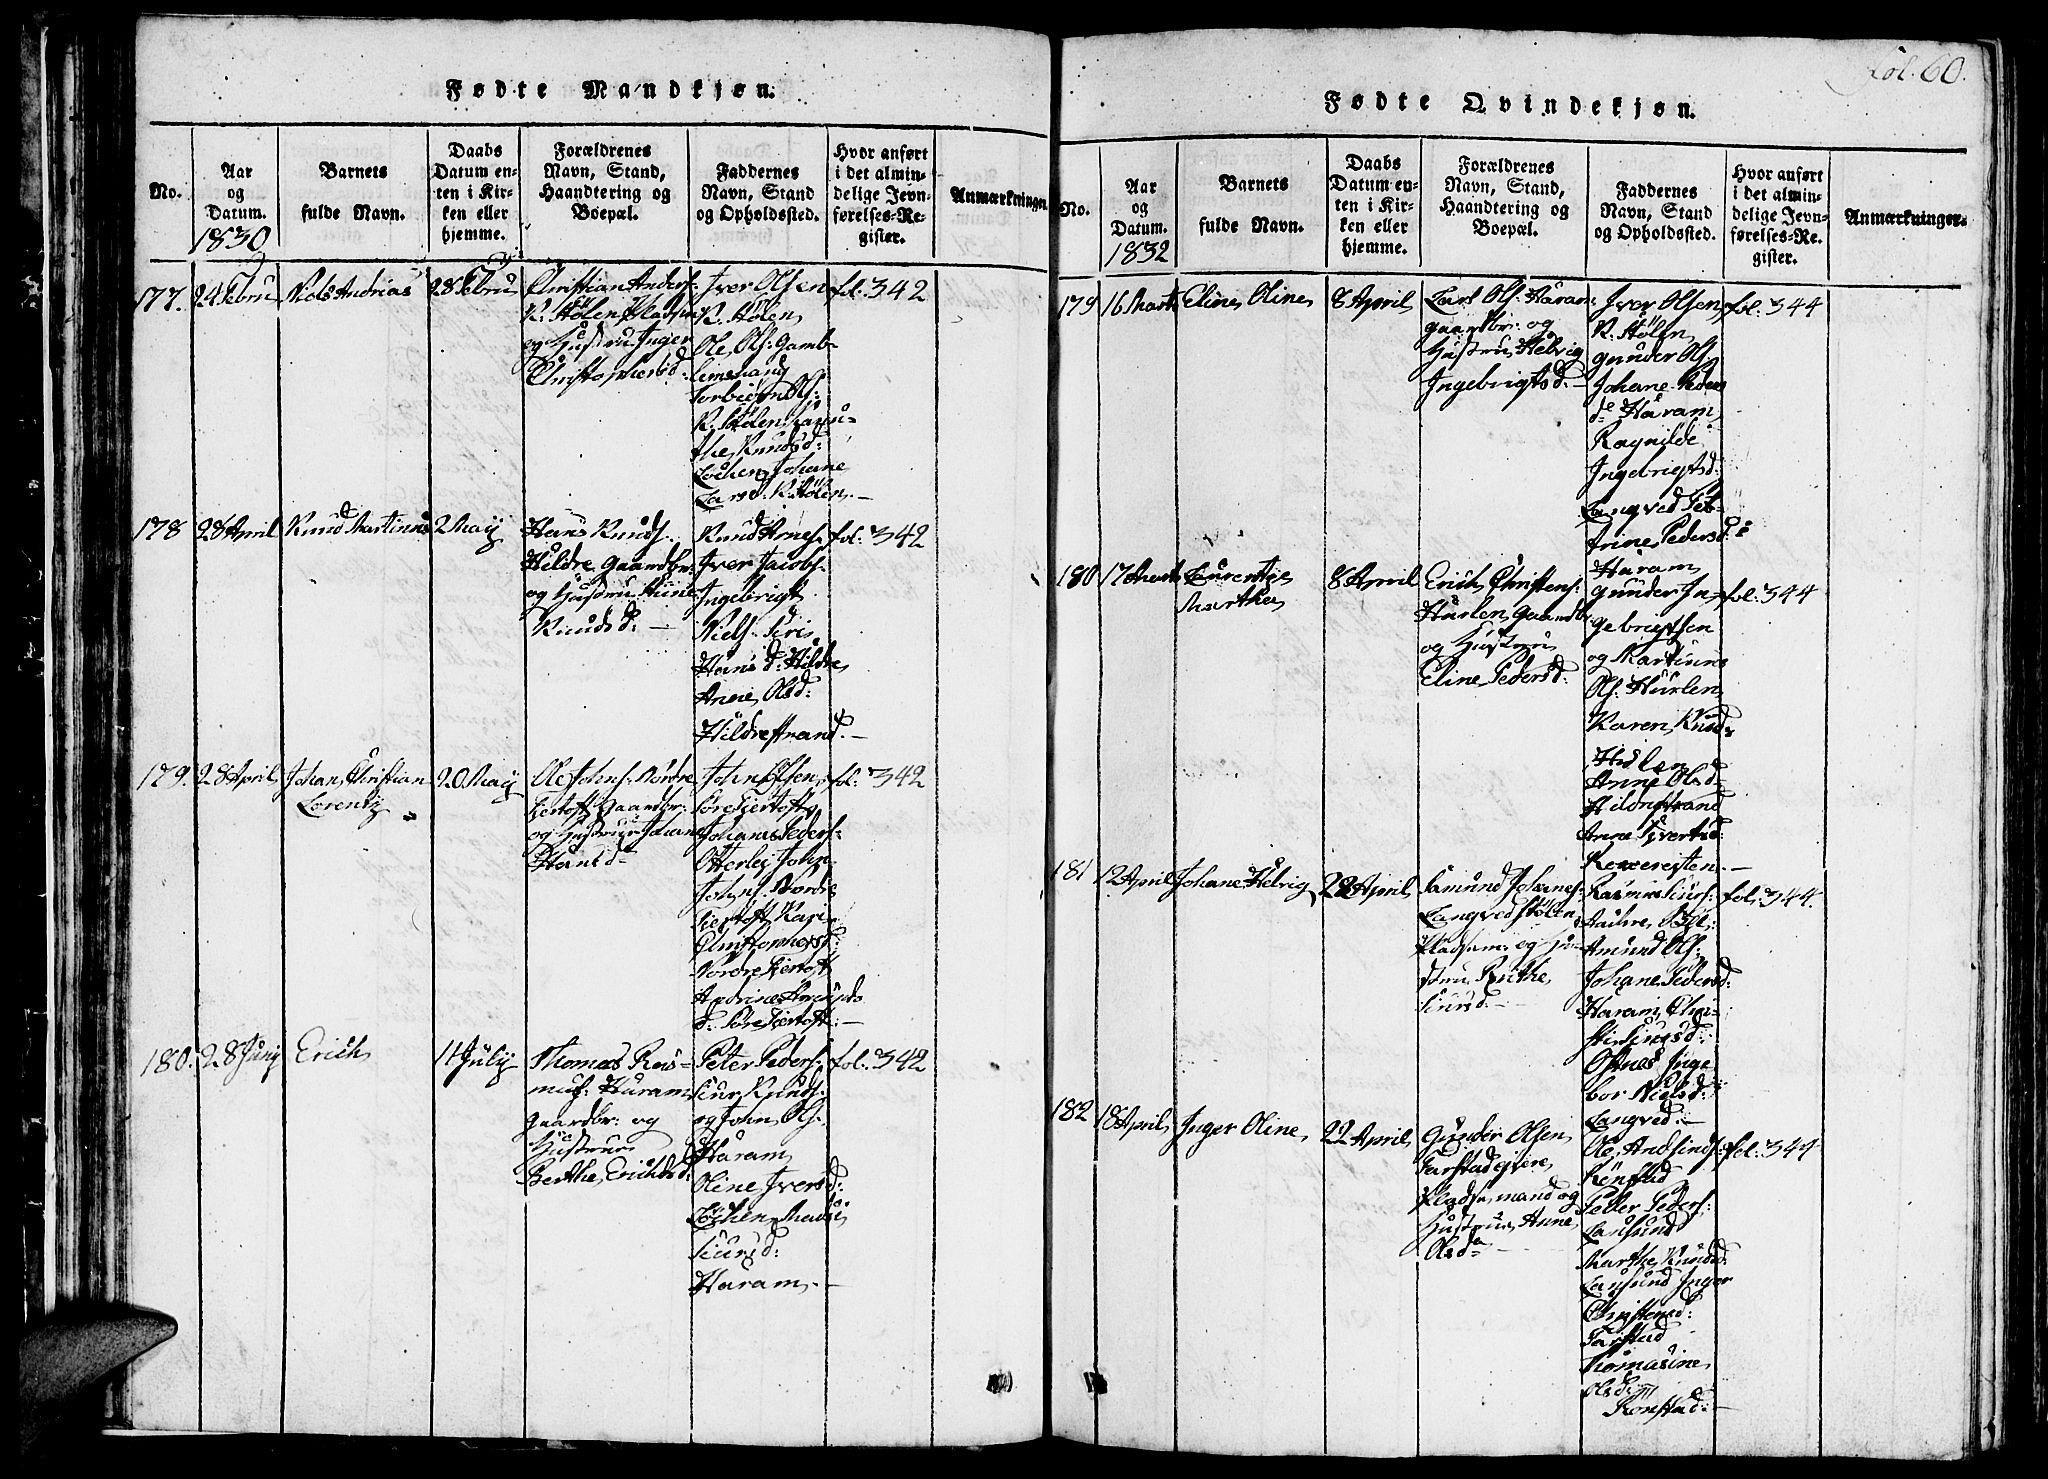 Fødte Mandkjøn.
No.
Aar
og
Datum.
1830
Barnets
fulde Navn.
Daabs
Datum en-
ten i Kir-
ken eller
hjemme.
Forældrenes
Navn, Stand,
Haandtering og
Boepæl.
Faddernes
Navn, Stand
og Opholdssted.
Hvor anført
i det almin-
delige Jevn-
førelses-Re-
gister.
Anmærkninger
177.
24 Febru
Niels Andrias
28 Febru
Christian Anders:
og Hustru Inger
Christophersd:
Iver Olsen
K. Stölen
Ole Ols: Gamb-
lemshaug
Torbiørn Ols:
K. Stölen
the Knudsd:
Löchen Johane
Larsd. K. Stölen.
fol. 342
178
28 April
Knud Martinus
2 Maij
Hans Knuds.
Hildre Gaardbr:
og Hustru
Knudsd: —
Knud Arnes.
Iver Jacobs.
Ingebrigt
Niels. Siri
Hans d: Hildre
Anne Olsd:
Hildrestrand. —
fol: 342
179.
28 April
Johan Christian
Lorentz
20 Maij
Ole Johns: Nordre
Fiertoft Gaardbr:
og Hustru Johane
Hansd
John Olsen
Søre Fiertoft
Johanes Peders:
Otterley John
Johns. Nordre
Fiertoft Kari
Christophersd:
Nordre Fiertoft
d. Søre Fiertoft. —
fol: 342
180.
28 Junij
Erich
11 Julij
Thomas Ras-
mus: Haram
Gaardbr: og
Hustrue
Berthe Erichsd:
Peter Peders:
Siur Knuds.
og John Ols.
Haram
Oline Iversd:
Löchen
Siursd:
Haram. —
fol. 342
fol. 60.
Fødte Qvindekjøn.
No.
Aar
og
Datum.
1832
Barnets
fulde Navn.
Daabs
Datum en-
ten i Kir-
ken eller
hjemme.
Forældrenes
Navn, Stand,
Haandtering og
Boepæl.
Faddernes
Navn, Stand
og Opholdssted.
Hvor anført
i det almin-
delige Jevn-
førelses-Re-
gister.
Anmærkninger.
179
16 Marts
Eline Oline
8 April
Lars Ols. Haram
Gaardbr: og
Hustrue Helvig
Ingebrigtsd. —
Iver Olsen
K. Stölen
Gunder Ols
Johane Peders
d. Haram
Ragnilde
Ingebrigtsd.
Langved
Pedersd:
Haram
fol. 344
180
17 Marts
Laurentze
Marthe
8 April
Erich Christens:
Hurlen Gaardbr
og Hustrue
Eline Pedersd:
Gunder In-
gebrigtsen
og Martinus
Ols. Hurlen
Karen Knuds
Anne Olsd
Hildrestrand
Anne Sivertsd:
fol. 344
181
12 April
Johane Helvig
22 April
Samund Johanes:
Langved Stölen
Pladsm: og Hu-
strue Berthe
Siursd. —
Rasmus Siurs:
Amund Ols.
Johane Pedersd:
Haram
Inge
bor Nielsd:
Langved. —
fol. 344.
182
18 April
Inger Oline
22 April
Gunder Olsen
Pladsemand og
Hustrue Anne
Olsd
Rönstad
Peder Peders:
Lausund
Marthe Knudsd.
Lausund Inger
Christensd:
Farstad
Thomasine
Olsd
Rönstad. —
fol. 344